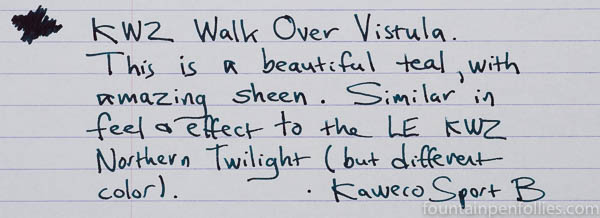 KWZ Walk Over Vistula.
This is a beautiful teal, with
amazing sheen. Similar in
feel & effect to the LE KWZ
Northern Twilight (but different
color). · Kaweco Sport B
fountainpenfollies.com